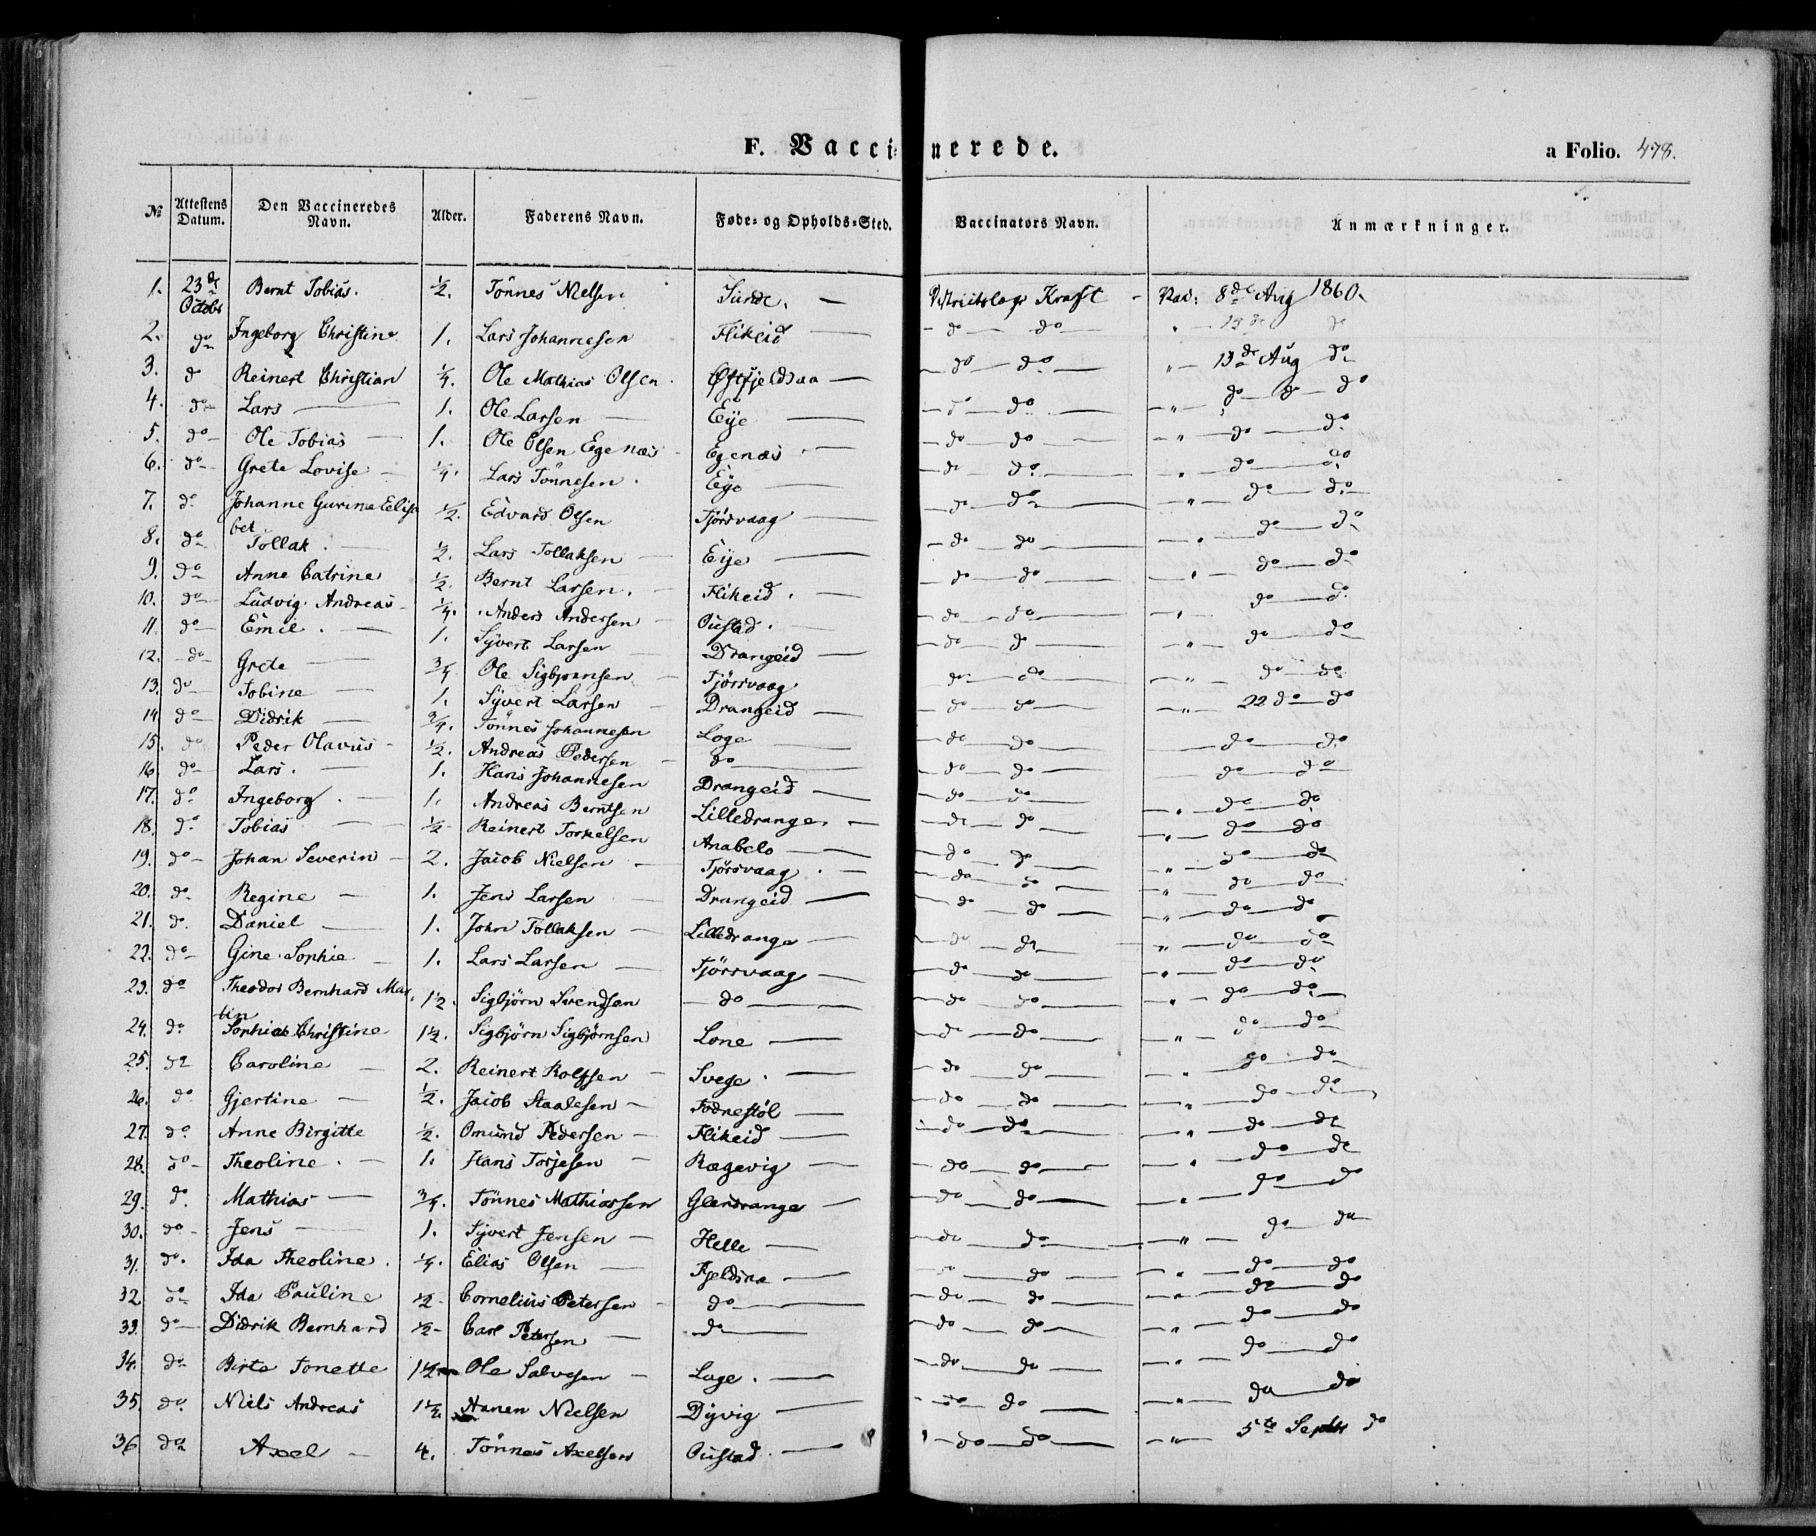 F. Vaccinerede. a Folio. 478.
№ Attestens Datum. Den Vaccineredes Navn. Alder. Faderens Navn. Føde- og Opholds-Sted. Vaccinators Navn. Anmærkninger.
1. 23 de Octobr Bernt Tobias. ½. Tönnes Nielsen Sunde. — Kraft - Vac: 8de Aug 1860.
2. do Ingeborg Christine 1. Lars Johannesen Flikeid — do — do — " do
3. do Reinert Christian ¼. Ole Mathias Olsen. Østfjeldsaa — do — do — " — 13de Aug do
4. do Lars — 1. Ole Larsen — Eije — do do — " — do — do — do
5. do Ole Tobias — 1. Ole Olsen Egenæs Egenæs. — do do — " — do — do
6. do Grete Lovise — ¼. Lars Tönnesen. Eije — do do — " do — do
7. do Johanne Gurine Elisa
bet ½. Edvard Olsen Fjörsvaag — do do — " — do — do
8. do Tollak. — ½. Lars Tollaksen — Eije — do do — " — do — do
9. do Anne Catrine ½. Bernt Larsen. — Flikeid. — do do — " — do — do
10. do Ludvig Andreas ¼. Anders Andersen — Oustad. — do do — " do — do
11. do Emil. — 1. Syvert Larsen — Drangeid — do do — " — do — do
12. do Grete — ¾ Ole Sigbjørnsen — Fjörsvaag. do do — " — do do
13. do Tobine — 1. Syvert Larsen — Drangeid — do do — " — 22 do — do
14. do Didrik — ¾. Tönnes Johannesen Loge — do do — do — do
15. do Peder Olavus - ½. Andreas Pedersen — do — do do — do do
16. do Lars. — 1. Hans Johannesen Drangeid — do do — " — do — do
17. do Ingeborg. — 1. Andreas Berntsen Lilledrange. — do do — " — do — do
18. do Tobias — ½ Reinert Torkelsen Anabelo — do do — " — do — do
19. do Johan Severin — 2. Jacob Nielsen — Fjörsvaag. — do do — " — do — do
20. do Regine — 1. Jens Larsen — Drangeid — do do — " — do — do
21. do Daniel — 1. John Tollaksen — Lilledrange — do — do — " — do — do
22. do Gine Sophie — 1. Lars Larsen — Fjörsvaag — do do — " — do — do
23. do Theodor Bernhard Mar
tin 1½. Sigbjörn Svendsen — do — do do — " — do — do
24. do Sophie Christine 1½. Sigbjörn Sigbjörnsen Lone — do do — " — do — do
25. do Caroline — 2. Reinert Rolfsen — Svege. — do do — " — do — do
26. do Gjertine — ½. Jacob Staalesen — Fodnestöl — do do — " — do — do
27. do Anne Birgitte ½. Omund Pedersen — Flikeid — do — do — " — do — do
28. do Theoline. — 1. Hans Torjesen — Rægevig — do do — " — do — do
29. do Mathias — ¾. Tönnes Mathiassen Glendrange — do do — " — do — do
30. do Jens — 1. Syvert Jensen — Helle — do do — " — do do
31. do. Ida Theoline. ¼. Elias Olsen — Fjeldsaa — do do — " — do — do
32. do Ida Pauline ½ Cornelius Petersen do — do do — " — do — do
33. do Didrik Bernhard ½ Carl Petersen — do — do do — " — do — do
34. do Birte Tonette 1½ Ole Salvesen — Loge. — do do — " — do — do
35. do Niels Andreas 1½. Hanen Nielsen Dyvig — do do — " — do — do
36 do Axel — 4. Tönnes Axelsen Oustad. — do — do — " — 5te Septbr do